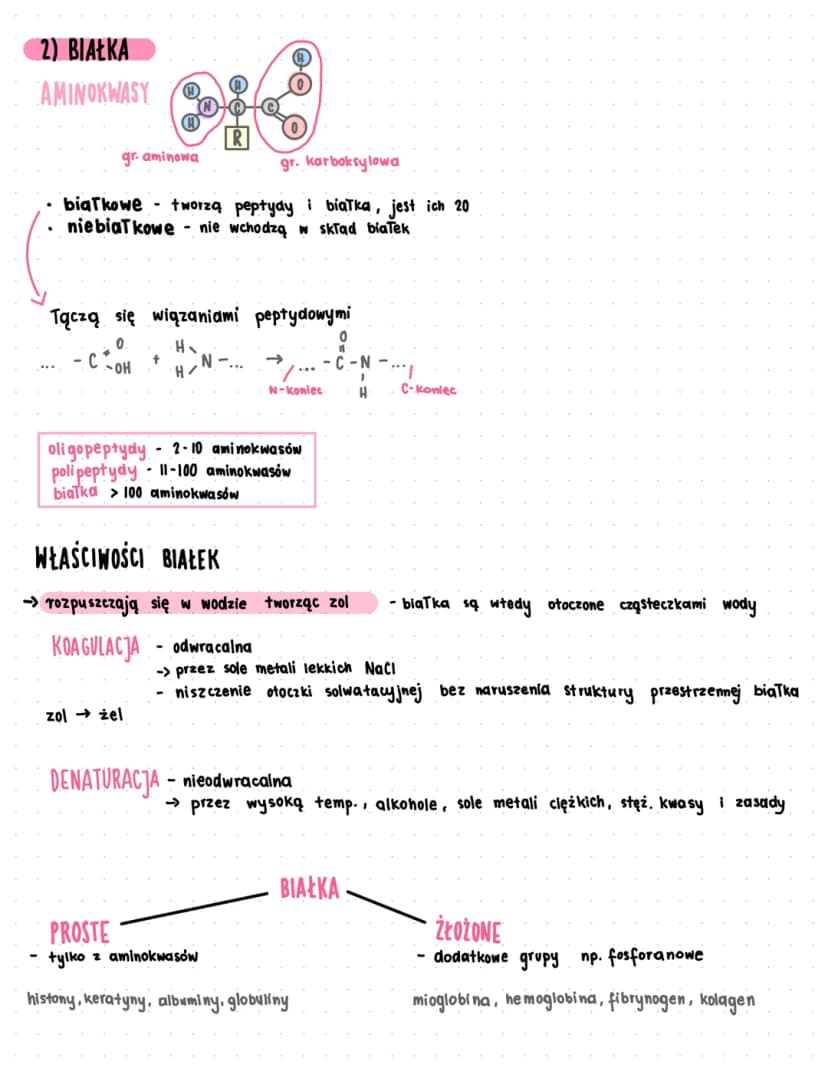 2) BIAŁKA
AMINOKWASY
H H H O
N C C
H R O
gr. aminowa
gr. karboksylowa
• białkowe - tworzą peptydy i białka, jest ich 20
• niebiałkowe - nie wchodzą w skład białek
łączą się wiązaniami peptydowymi
O H O
... - C OH + N - ... → ... - C - N - ...
H H
N-koniec C-koniec
oligopeptydy - 2-10 aminokwasów
polipeptydy - 11-100 aminokwasów
białka > 100 aminokwasów
WŁAŚCIWOŚCI BIAŁEK
→ rozpuszczają się w wodzie tworząc zol - białka są wtedy otoczone cząsteczkami wody
KOAGULACJA - odwracalna
-> przez sole metali lekkich NaCl
- niszczenie otoczki solwatacyjnej bez naruszenia struktury przestrzennej białka
zol → żel
DENATURACJA - nieodwracalna
→ przez wysoką temp., alkohole, sole metali ciężkich, stęż. kwasy i zasady
BIAŁKA
PROSTE ŻŁOŻONE
- tylko z aminokwasów - dodatkowe grupy np. fosforanowe
histony, keratyny, albuminy, globuliny mioglobina, hemoglobina, fibrynogen, kolagen